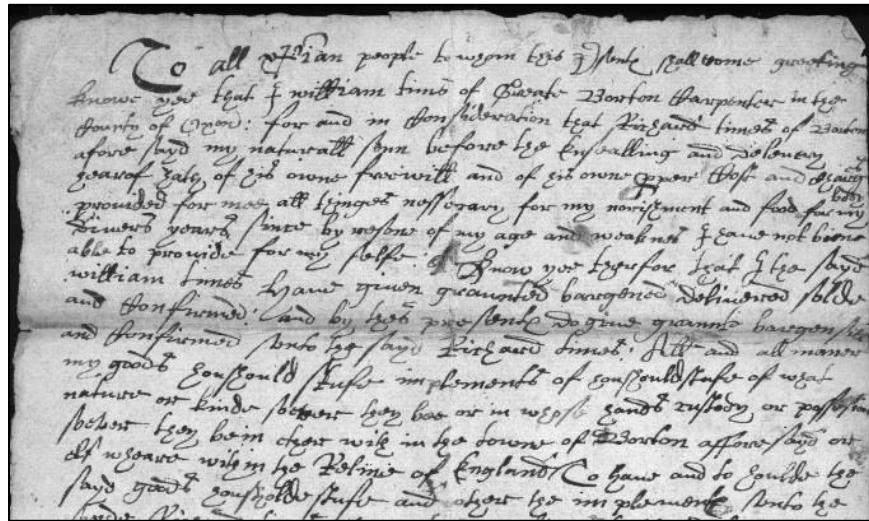 To all xpian people to whom this psents shall come greeting
knowe yee that I william tims of Greate Borton Carpenter in the
County of Oxon: for and in Consideration that Richard times of Borton
afore sayd my naturall sonn before the ensealling and delevery
hearof hath of his owne freewill and of his owne pper Cost and charges
provided for mee all thinges nessecary for my norishment and food for my body
divers years since by resone of my age and weaknes I have not bine
able to provide for my selfe: Know yee therfor that I the sayd
william times Have given graunted bargened delivered solde
and Confirmed: and by thes presents do give graunte bargen sell
and Confirmed unto the sayd Richard times: All and all maner
my goods houshould stufe implements of houshouldstufe of what
nature or kinde soever they bee or in whose hands custody or possession
soever they be in ether with in the towne of Borton affore sayd or
els wheare within the Relme of England To have and to houlde the
sayd goods housholdestufe and other the implements unto the
sayde